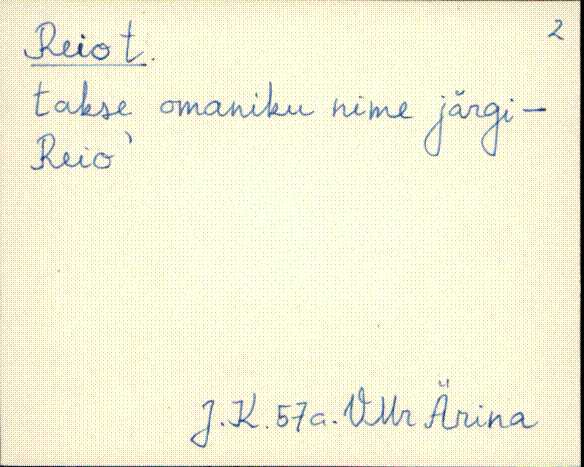 2
Reio t.
takse omaniku nime järgi –
Reio'
J. K. 57a. VMr Ärina